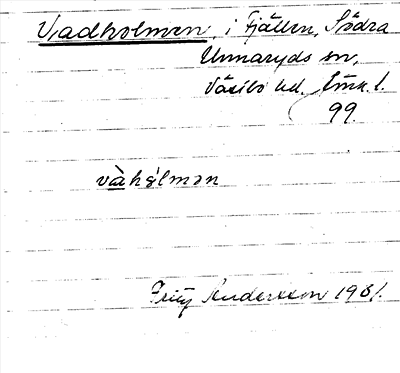 Vadholmen, i Fjällen, Södra
Unnaryds sn,
Västbo hd. Jönk. l.
99.
vàhólmən
Fritz Andersson 1931.